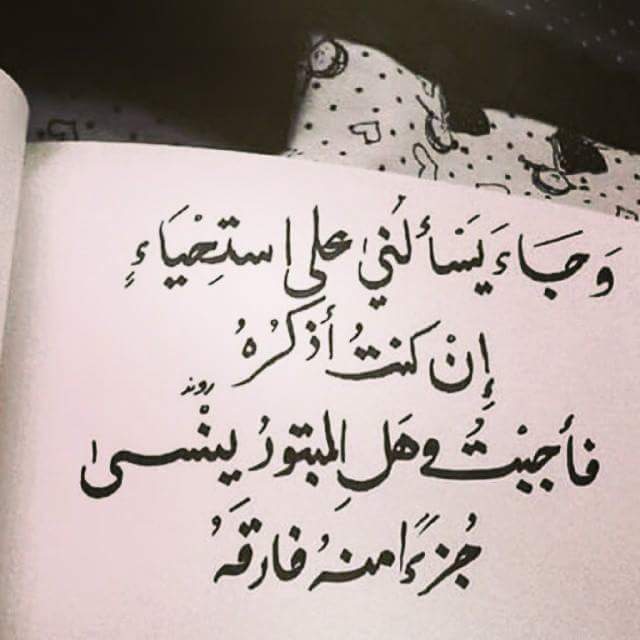 وَجَاءَ يَسْألُني على استِحْيَاءٍ
إِنْ كنتُ أذكُرُهُ
فأجبْتُ وهَلِ المبتورُ ينْسىٰ
روند
جُزءًا منهُ فارقَهُ